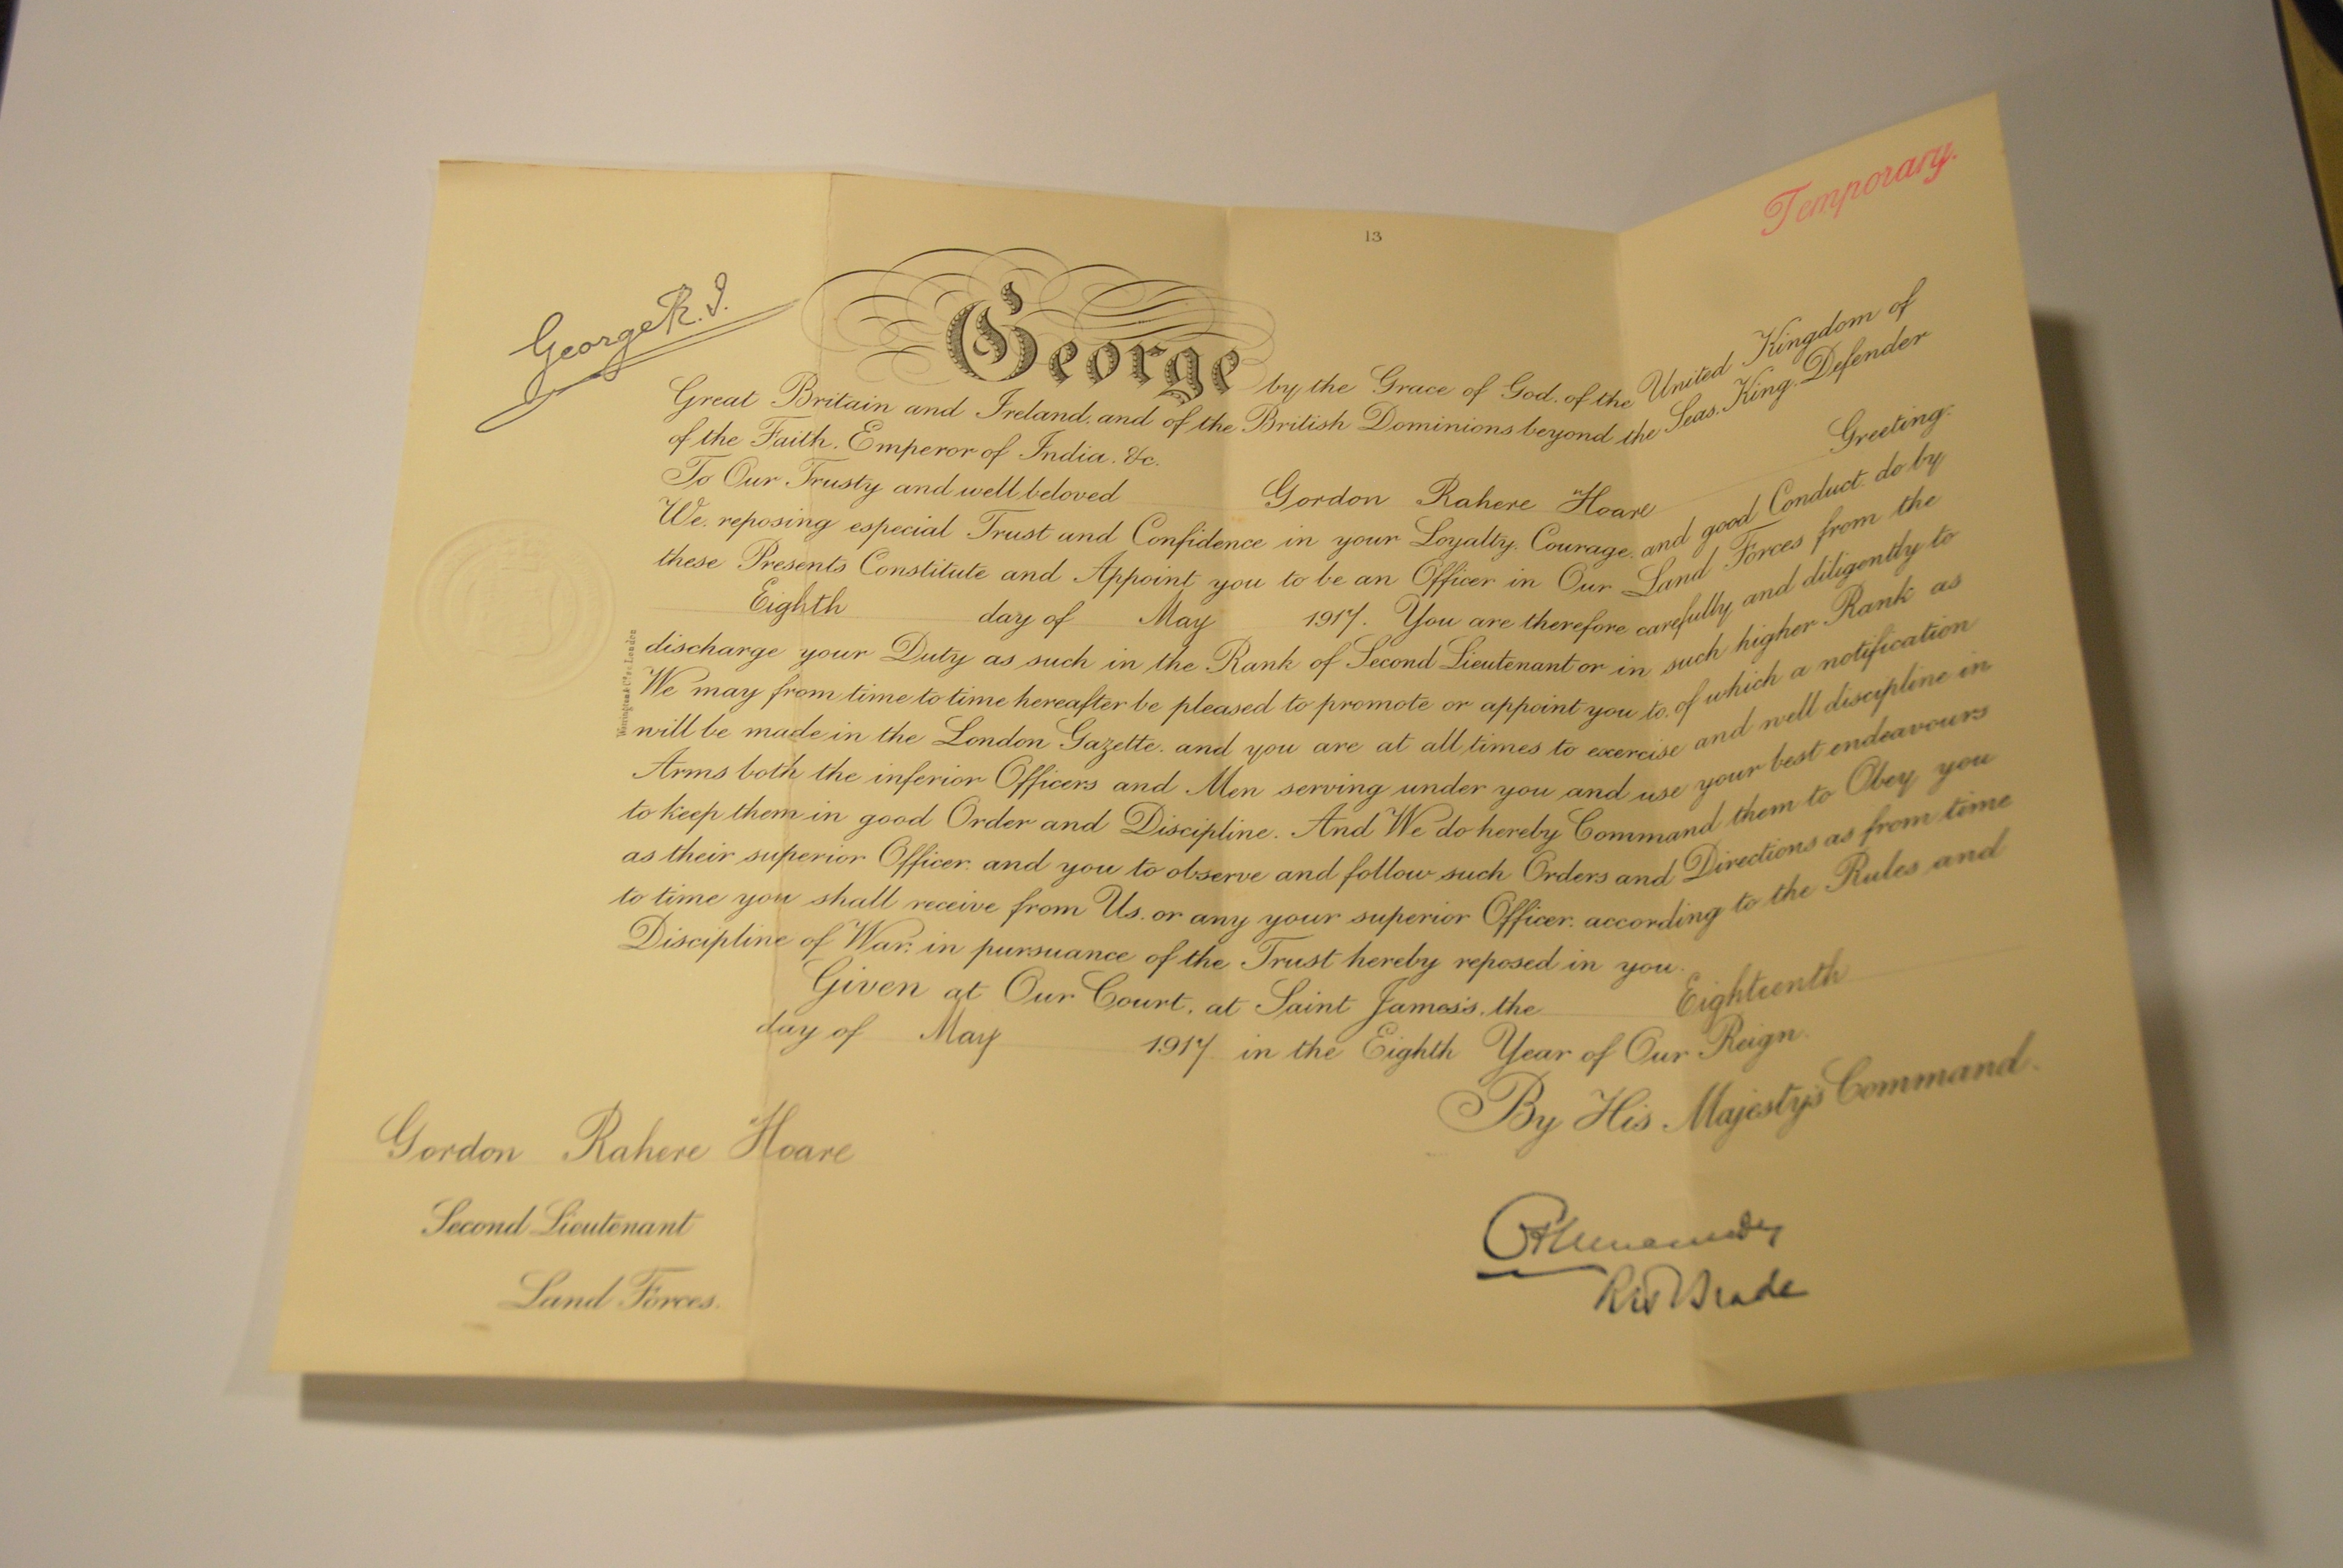 Temporary.
13
George R.I.
George by the Grace of God, of the United Kingdom of
Great Britain and Ireland, and of the British Dominions beyond the Seas, King, Defender
of the Faith, Emperor of India, &c.
To Our Trusty and well beloved Gordon Rahere Hoare Greeting:
We, reposing especial Trust and Confidence in your Loyalty, Courage, and good Conduct, do by
these Presents Constitute and Appoint you to be an Officer in Our Land Forces from the
Eighth day of May 1917. You are therefore carefully and diligently to
discharge your Duty as such in the Rank of Second Lieutenant or in such higher Rank as
We may from time to time hereafter be pleased to promote or appoint you to, of which a notification
will be made in the London Gazette, and you are at all times to exercise and well discipline in
Arms both the inferior Officers and Men serving under you and use your best endeavours
to keep them in good Order and Discipline. And We do hereby Command them to Obey you
as their superior Officer, and you to observe and follow such Orders and Directions as from time
to time you shall receive from Us, or any your superior Officer, according to the Rules and
Discipline of War, in pursuance of the Trust hereby reposed in you.
Given at Our Court, at Saint James's, the Eighteenth
day of May 1917 in the Eighth Year of Our Reign.
By His Majesty's Command.
Gordon Rahere Hoare
Second Lieutenant
Land Forces.
Brade
London